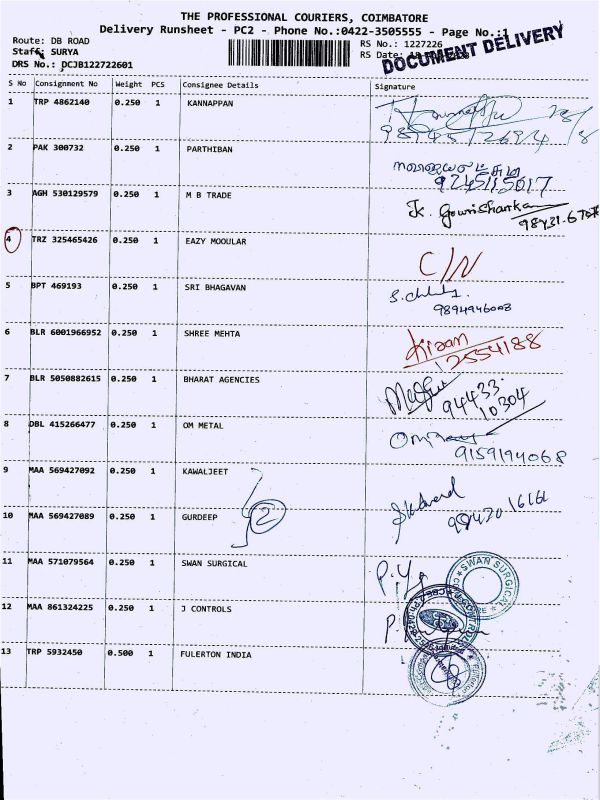 THE PROFESSIONAL COURIERS, COIMBATORE
Delivery Runsheet - PC2 - Phone No.:0422-3505555 - Page No.:1
Route: DB ROAD
RS No.: 1227226
DOCUMENT DELIVERY
Staff: SURYA
RS Date:
DRS No.: DCJB122722601
S No Consignment No Weight PCS Consignee Details Signature
1 TRP 4862140 0.250 1 KANNAPPAN
2 PAK 300732 0.250 1 PARTHIBAN
9245115017
3 AGH 530129579 0.250 1 M B TRADE
K. Gowrishankar
4 TRZ 325465426 0.250 1 EAZY MOOULAR
C/N
5 BPT 469193 0.250 1 SRI BHAGAVAN
9894946008
6 BLR 6001966952 0.250 1 SHREE MEHTA
Kiran
2554188
7 BLR 5050882615 0.250 1 BHARAT AGENCIES
94433
10304
8 DBL 415266477 0.250 1 OM METAL
9159194068
9 MAA 569427092 0.250 1 KAWALJEET
10 MAA 569427089 0.250 1 GURDEEP
2
11 MAA 571079564 0.250 1 SWAN SURGICAL
SWAN SURGICAL
12 MAA 861324225 0.250 1 J CONTROLS
13 TRP 5932450 0.500 1 FULERTON INDIA